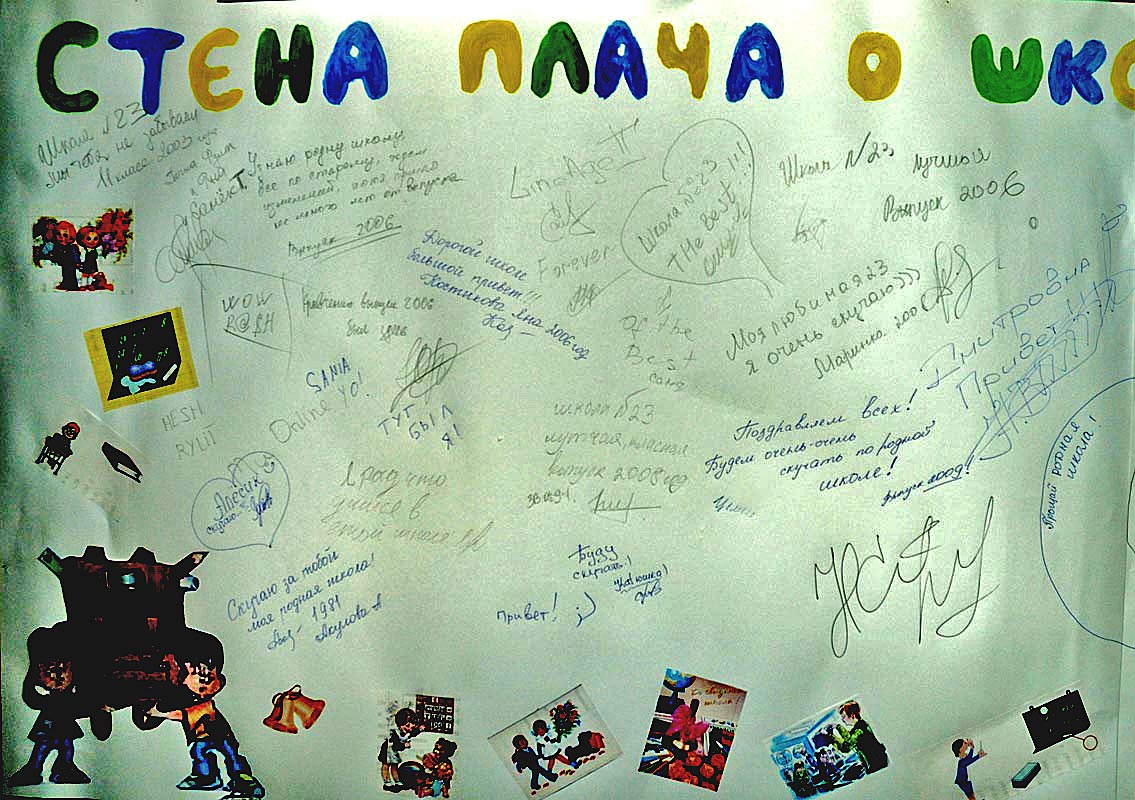 СТЕНА ПЛАЧА О ШКО
Школа №23
мы тебя не забываем
11 класс 2003
Узнаю родную школу
все по старому, кроме
изменений,
лет от выпуска
Выпуск 2006
LineAge II
Forever
Школа №23
THe Best!!!
Школа №23 лучший
Выпуск 2006
Дорогой школе
большой привет!!!
Костикова Яна 2006 год
WOW
R@SH
выпуск 2006
был здесь
Of the
Best
Моя любимая 23
я очень скучаю)))
Маринка. 2006
Дмитровна
Привет!!!
SANIA
Online YO!
ТУТ
БЫЛ
Я!
MESH
RYLIT
школа №23
выпуск 2008 год
Поздравляем всех!
Будем очень-очень
скучать по родной
школе!
выпуск 2009!
Прощай родная
школа!
Я рад что
учусь в
этой школе
Скучаю за тобой
моя родная школа!
1981
Акулова А
Буду
скучать!
Катюшка!
Привет! ;)